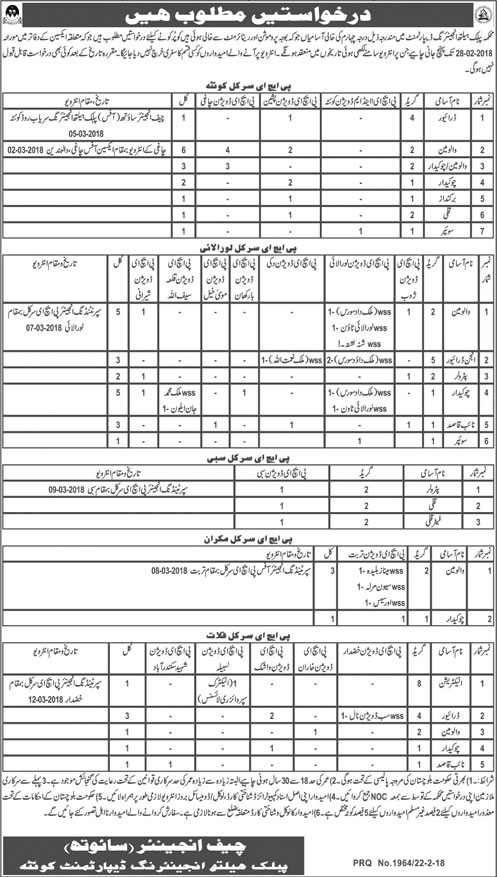 درخواستیں مطلوب ہیں
محکمہ پبلک ہیلتھ انجینئرنگ ڈیپارٹمنٹ میں مندرجہ ذیل درجہ چہارم کی خالی آسامیاں جو کہ بوجہ پروموشن اور ریٹائرمنٹ سے خالی ہوئی ہیں کو پُر کرنے کیلئے درخواستیں مطلوب ہیں جو کہ متعلقہ ایکسین کے دفاتر میں مورخہ
28-02-2018 تک پہنچ جانی چاہیے
ہوگی۔
پی ایچ ای سرکل کوئٹہ
نمبر شمار نام آسامی گریڈ پی ایچ ای اینڈ ایم ڈویژن کوئٹہ پی ایچ ای ڈویژن پشین پی ایچ ای ڈویژن چاغی کل تاریخ، مقام انٹرویو
1 ڈرائیور 4 - 1 - 1 چیف انجینئر ساؤتھ (آفس) پبلک ہیلتھ انجینئرنگ سریاب روڈ کوئٹہ 05-03-2018
2 والومین 2 - 2 4 6 چاغی کے انٹرویو بمقام ایکسین آفس چاغی، دالبندین 02-03-2018
3 والومین/چوکیدار - - 3 3
4 چوکیدار 1 - 2 - 2
5 برکنداز 1 - 1 - 1
6 قلی 2 - 1 - 1
7 سوئپر 1 1 - - 1
پی ایچ ای سرکل لورالائی
نمبر شمار نام آسامی گریڈ پی ایچ ای ڈویژن ژوب پی ایچ ای ڈویژن لورالائی پی ایچ ای ڈویژن دکی پی ایچ ای ڈویژن بارکھان پی ایچ ای ڈویژن موسیٰ خیل پی ایچ ای ڈویژن قلعہ سیف اللہ پی ایچ ای ڈویژن شیرانی کل تاریخ و مقام انٹرویو
1 والومین 2 1 wss (ملک داد سورس) -1 - - - - 1 5 سپرنٹنڈنگ انجینئر پی ایچ ای سرکل بمقام لورالائی 07-03-2018
wss لورالائی ٹاؤن -1
wss
2 انجن ڈرائیور 5 - wss (ملک داد سورس) -2 wss (ملک نعمت اللہ) -1 - - - - 3
3 پٹرولر 2 1 - - - - - 1 2
4 چوکیدار 1 - wss (ملک داد سورس) -1 - 1 - wss ملک محمد جان ایلون -1 1 5
wss لورالائی ٹاؤن -1
5 نائب قاصد 1 1 - - 1 1 - - 3
6 سوئپر 1 - 1 - - - - - 1
پی ایچ ای سرکل سبی
نمبر شمار نام آسامی گریڈ پی ایچ ای ڈویژن سبی تاریخ و مقام انٹرویو
1 پٹرولر 2 1 سپرنٹنڈنگ انجینئر پی ایچ ای سرکل بمقام سبی 09-03-2018
2 قلی 2 1
3 فیٹر قلی 2 1
پی ایچ ای سرکل مکران
نمبر شمار نام آسامی گریڈ پی ایچ ای ڈویژن تربت کل تاریخ و مقام انٹرویو
1 والومین 2 wss میناز بلیدہ -1 3 سپرنٹنڈنگ انجینئر آفس پی ایچ ای سرکل بمقام تربت 08-03-2018
wss سیون مرلہ -1
wss اورسیس -1
2 چوکیدار 1 1 1
پی ایچ ای سرکل قلات
نمبر شمار نام آسامی گریڈ پی ایچ ای ڈویژن خضدار پی ایچ ای ڈویژن خاران پی ایچ ای ڈویژن واشک پی ایچ ای لسبیلہ پی ایچ ای ڈویژن شہید سکندرآباد کل تاریخ و مقام انٹرویو
1 الیکٹریشن 8 - - - 1 (الیکٹرک سپروائزری لائسنس) - 1 سپرنٹنڈنگ انجینئر پی ایچ ای سرکل بمقام خضدار 12-03-2018
2 ڈرائیور 4 wss سب ڈویژن نال -1 - 2 - - 3
3 والومین 2 - 1 - - - 1
4 چوکیدار 1 - - 2 - - 1
5 نائب قاصد 1 - - - - 1 1
شرائط:۔ 1) بھرتی حکومت بلوچستان کی مروجہ پالیسی کے تحت ہوگی۔ 2) عمر کی حد 18 سے 30 سال ہونی چاہیے البتہ زیادہ سے زیادہ عمر کی حد سرکاری قوانین کے تحت رعایت کی گنجائش موجود ہے۔ 3) پہلے سے سرکاری
ملازمین اپنی درخواستیں محکمہ کے توسط سے بمعہ NOC جمع کروائیں۔ 4) امیدوار اپنی اصل اسناد کمپیوٹرائزڈ شناختی کارڈ، لوکل/ڈومیسائل بروز انٹرویو لازمی طور پر ہمراہ لائیں۔ 5) حکومت بلوچستان کے احکامات کے تحت
معذور امیدواروں کیلئے 2 فیصد غیر مسلم امیدواروں کیلئے 5 فیصد کوٹہ مختص ہے۔ 6) امیدوار کا لوکل و شناختی کارڈ متعلقہ ضلع سے ہونا لازمی ہے۔ سفارش کروانے والے امیدوار نااہل تصور کئے جائیں گے۔
چیف انجینئر (ساؤتھ)
پبلک ہیلتھ انجینئرنگ ڈیپارٹمنٹ کوئٹہ
PRQ No.1964/22-2-18